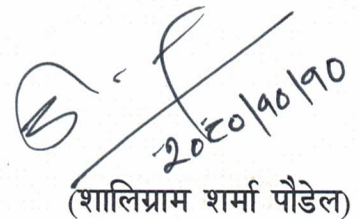 २०८०/१०/१०
(शालिग्राम शर्मा पौडेल)